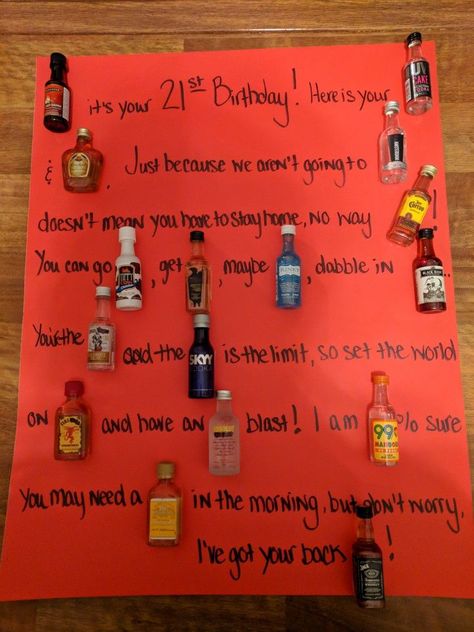 it's your 21st Birthday! Here is your
UV
CAKE
& . Just because we aren't going to
Jose
Cuervo
doesn't mean you have to stay home, No way !
You can go , get , maybe , dabble in ..
You're the and the is the limit, so set the world
SKYY
VODKA
on and have an blast! I am % sure
FIREBALL
99
MANGO
You may need a in the morning, but don't worry,
I've got your back !
JACK